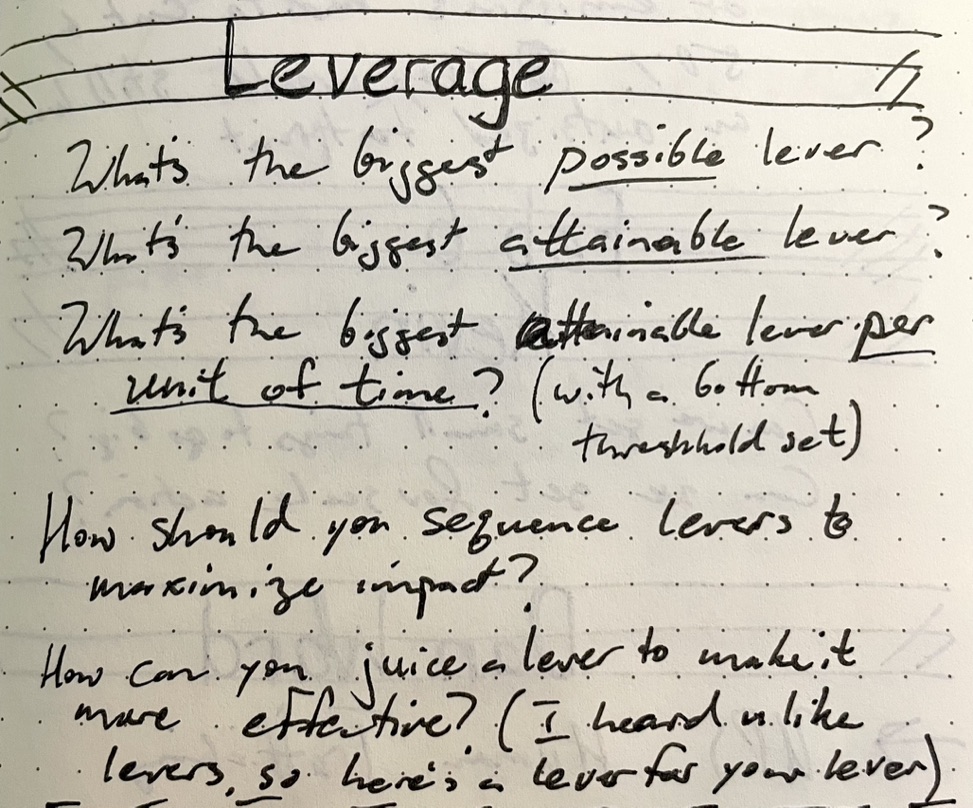 Leverage
What's the biggest possible lever?
What's the biggest attainable lever?
What's the biggest attainable lever per
unit of time? (with a bottom
threshhold set)
How should you sequence levers to
maximize impact?
How can you juice a lever to make it
more effective? (I heard u like
levers, so here's a lever for your lever)